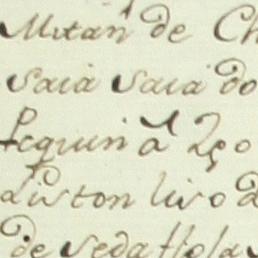 Mitan de Ch
saia saia do
Pequin a 250
Liston liso d
de seda Hola